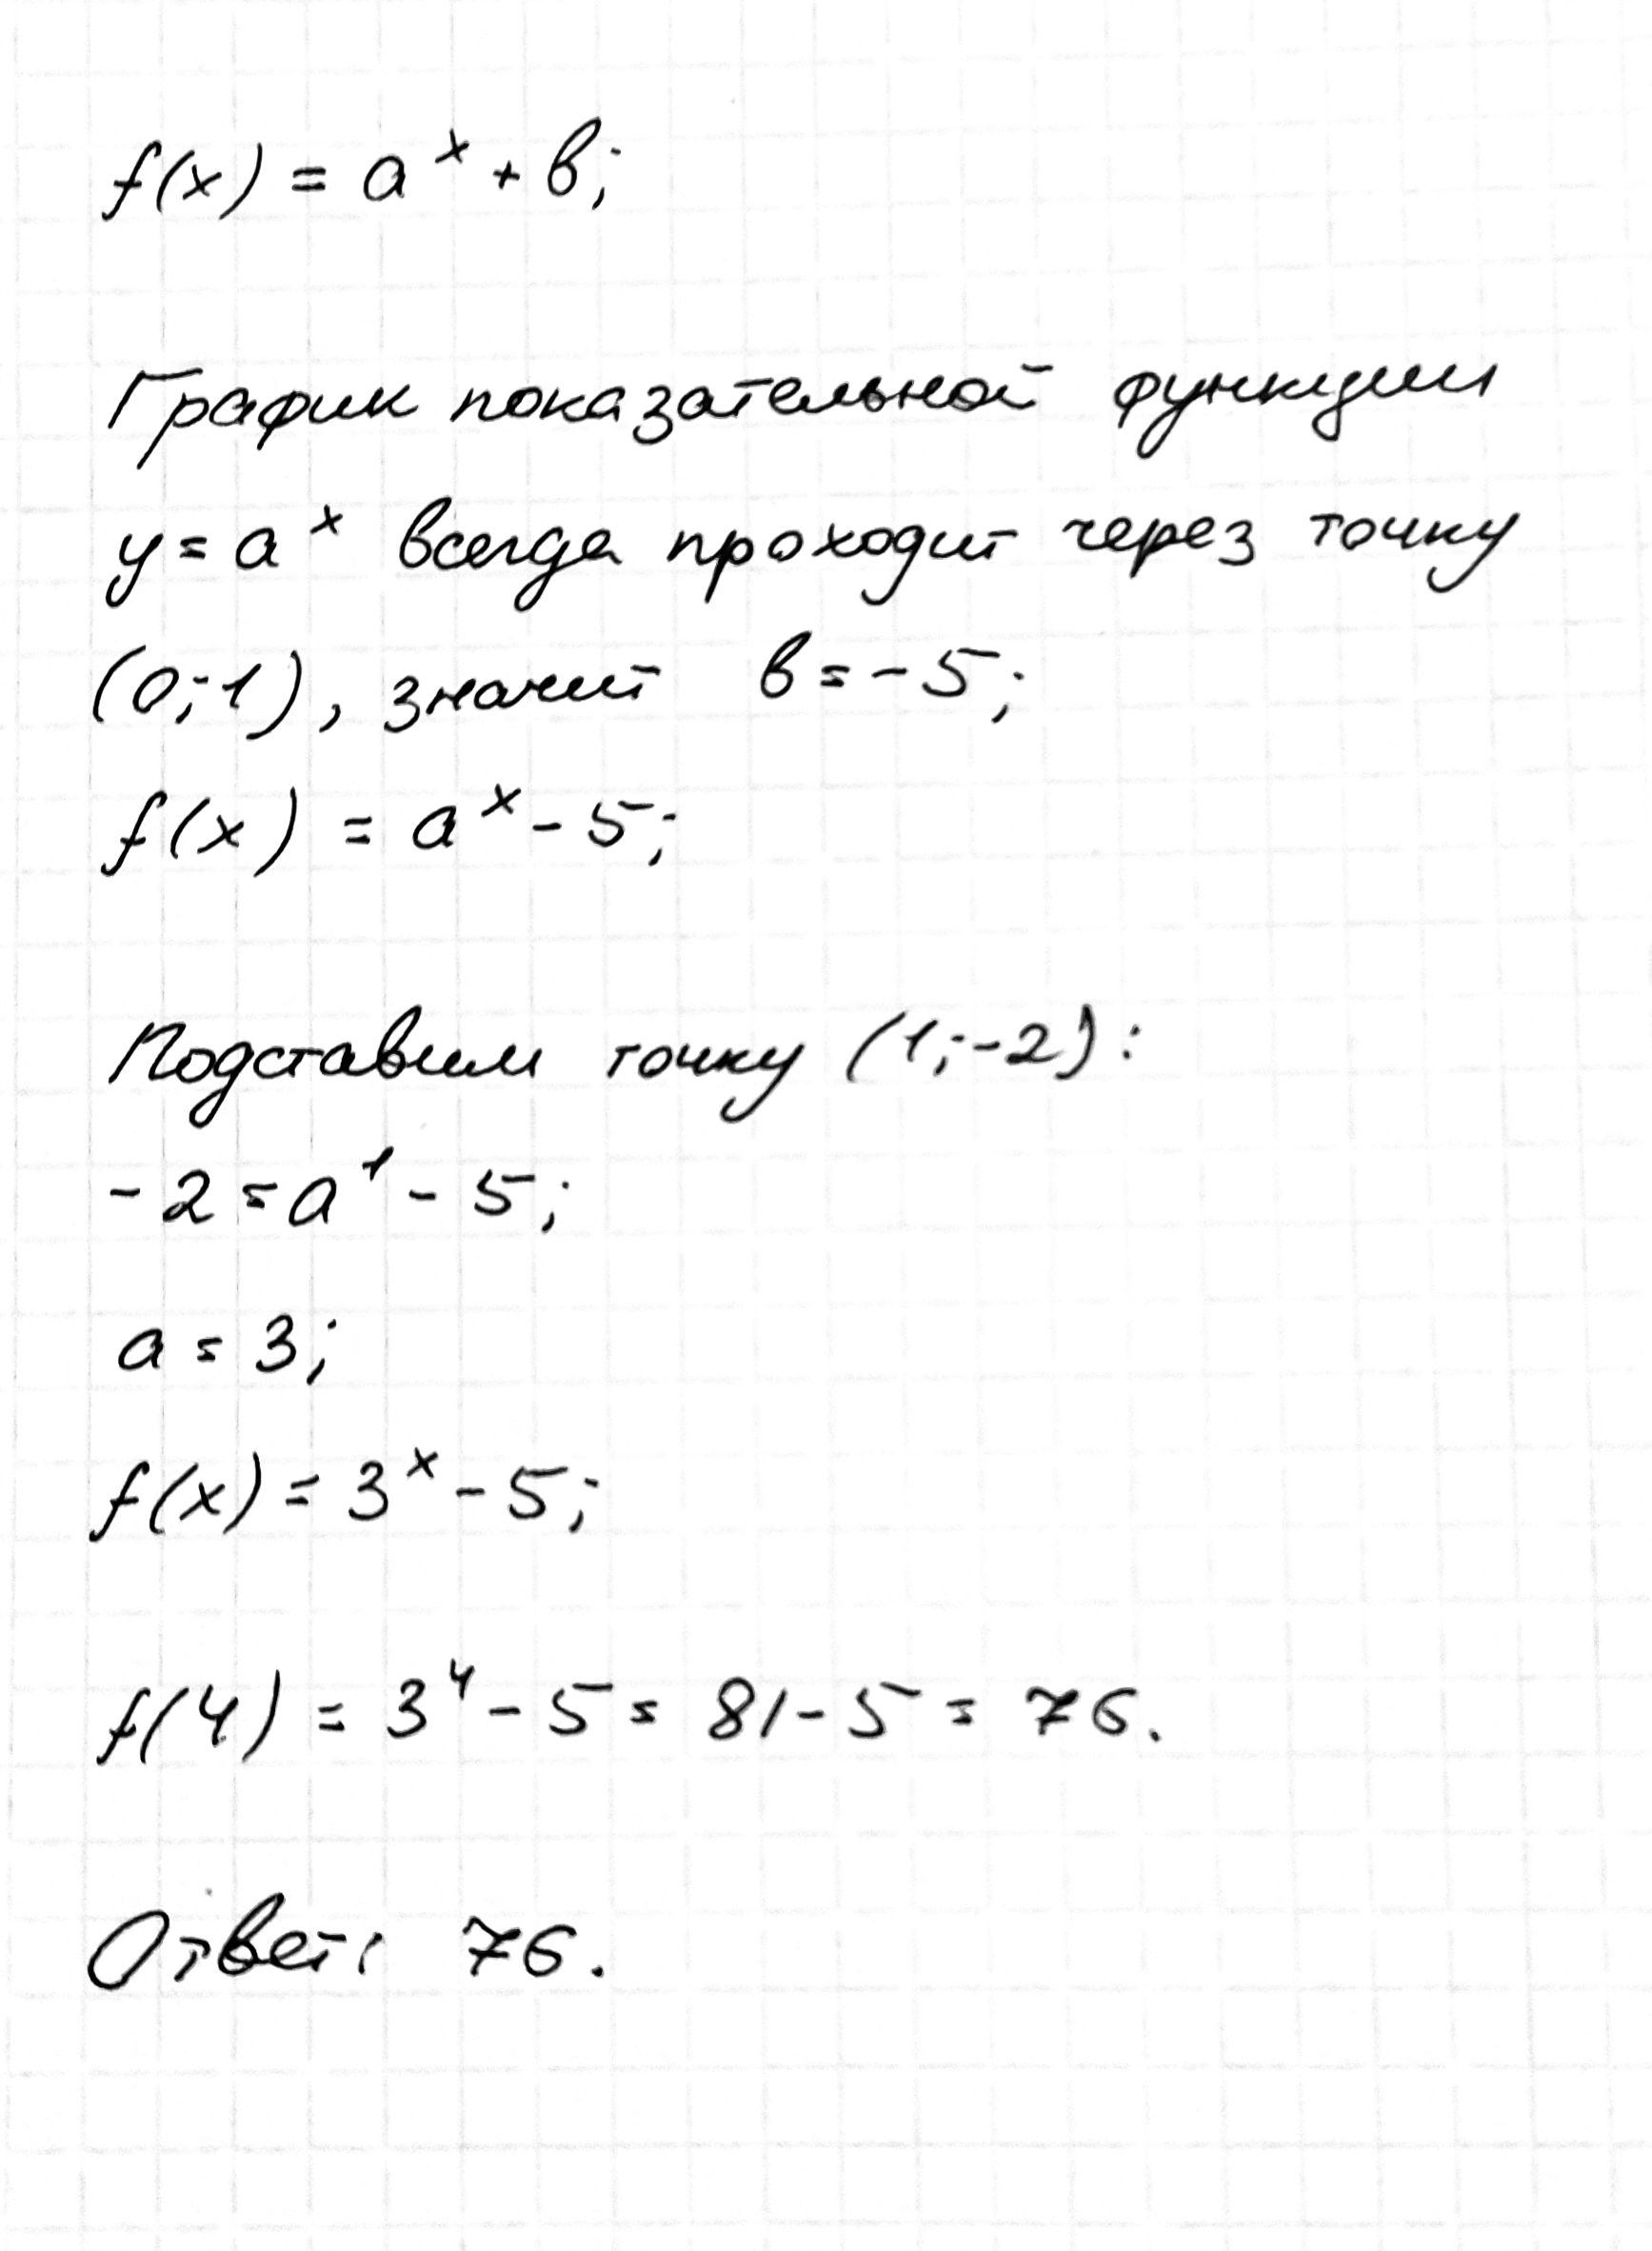 f(x) = a^x + b;
График показательной функции
y = a^x всегда проходит через точку
(0; 1), значит b = -5;
f(x) = a^x - 5;
Подставим точку (1; -2):
-2 = a^1 - 5;
a = 3;
f(x) = 3^x - 5;
f(4) = 3^4 - 5 = 81 - 5 = 76.
Ответ: 76.